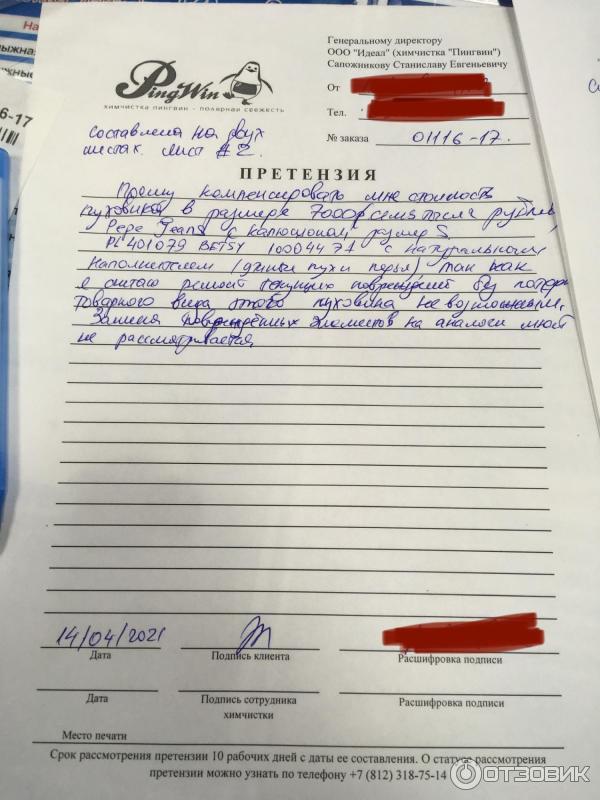 Генеральному директору
ООО "Идеал" (химчистка "Пингвин")
Сапожникову Станиславу Евгеньевичу
От
Тел.
№ заказа 01116-17.
PingWin
химчистка пингвин - полярная свежесть
Составлена на двух
листах. Лист #2.
ПРЕТЕНЗИЯ
Прошу компенсировать мне стоимость
пуховика в размере 7000р семь тысяч рублей
Pepe Jeans с капюшоном, размер S
PL401079 BETSY 1000447 с натуральным
наполнителем (утиный пух и перья) так как
я считаю ремонт текущих повреждений без потери
товарного вида этого пуховика не возможным.
Замена повреждённых элементов на аналоги мной
не рассматривается
14/04/2021
Дата Подпись клиента Расшифровка подписи
Дата Подпись сотрудника химчистки Расшифровка подписи
Место печати
Срок рассмотрения претензии 10 рабочих дней с даты ее составления. О статусе рассмотрения
претензии можно узнать по телефону +7 (812) 318-75-14
ОТЗОВИК
6-17